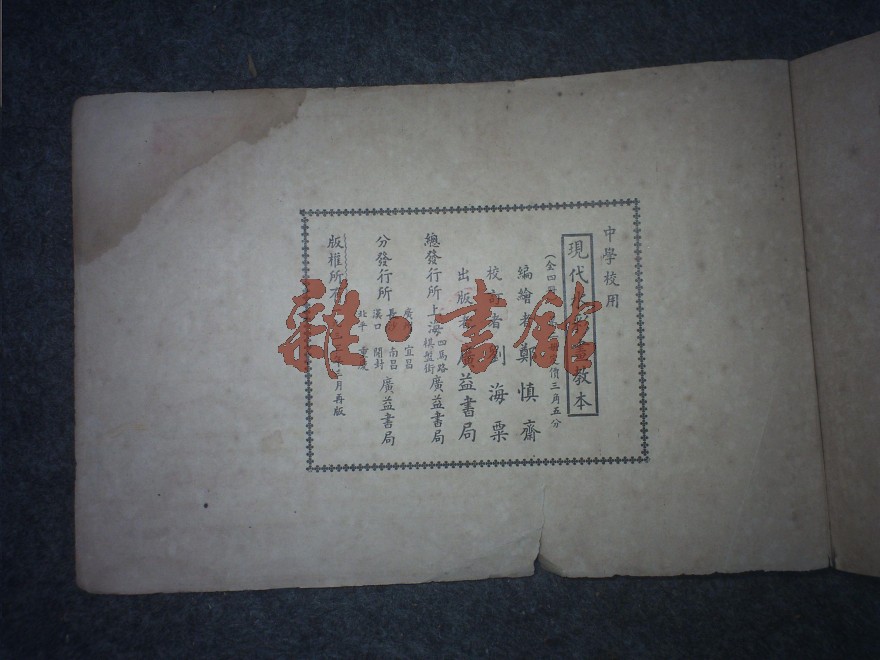 中學校用
現代 教本
(全四 價三角五分
編繪者鄭慎齋
校 者劉海粟
出版者廣益書局
總發行所上海四馬路棋盤街廣益書局
分發行所
宜昌
長沙 南昌
漢口 開封
北平 重慶
廣益書局
版權所有
月再版
雜·書館